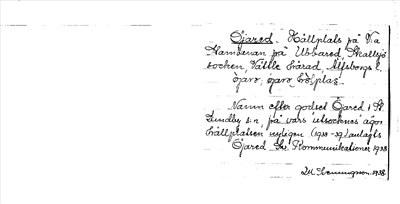 Öjared. Hållplats på V:a
Stambanan på Ubbared, Skallsjö
socken, Vättle härad, Älfsborgs l.
Namn efter godset Öjared i St.
Lundby s:n, på vars utsocknes ägor
hållplatsen nyligen (1938-39) anlagts
Öjared Kommunikationer 1938
1938